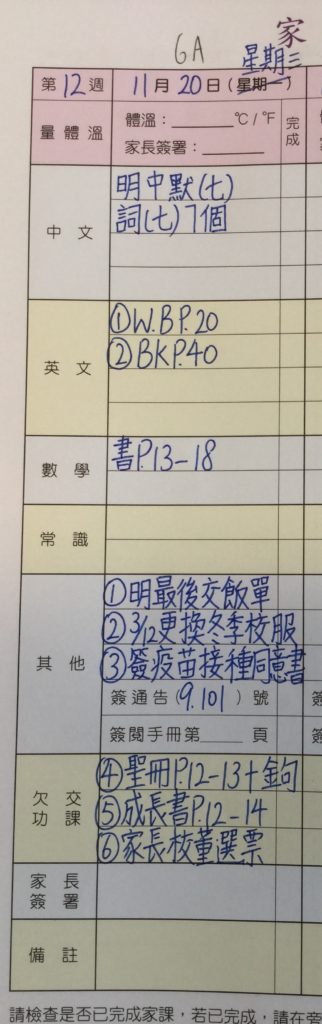 6A 家
星期三
第12週 11月20日(星期一)
量體溫 體溫：______°C/°F 完成
家長簽署：______
中文 明中默(七)
詞(七)7個
英文 ①W.B P.20
②BK P.40
數學 書P.13-18
常識
其他 ①明最後交飯單
②3/12更換冬季校服
③簽疫苗接種同意書
簽通告(9.101)號 簽
簽閱手冊第____頁 簽
欠交功課 ④聖冊P.12-13+金句
⑤成長書P.12-14
⑥家長校董選票
家長簽署
備註
請檢查是否已完成家課，若已完成，請在旁